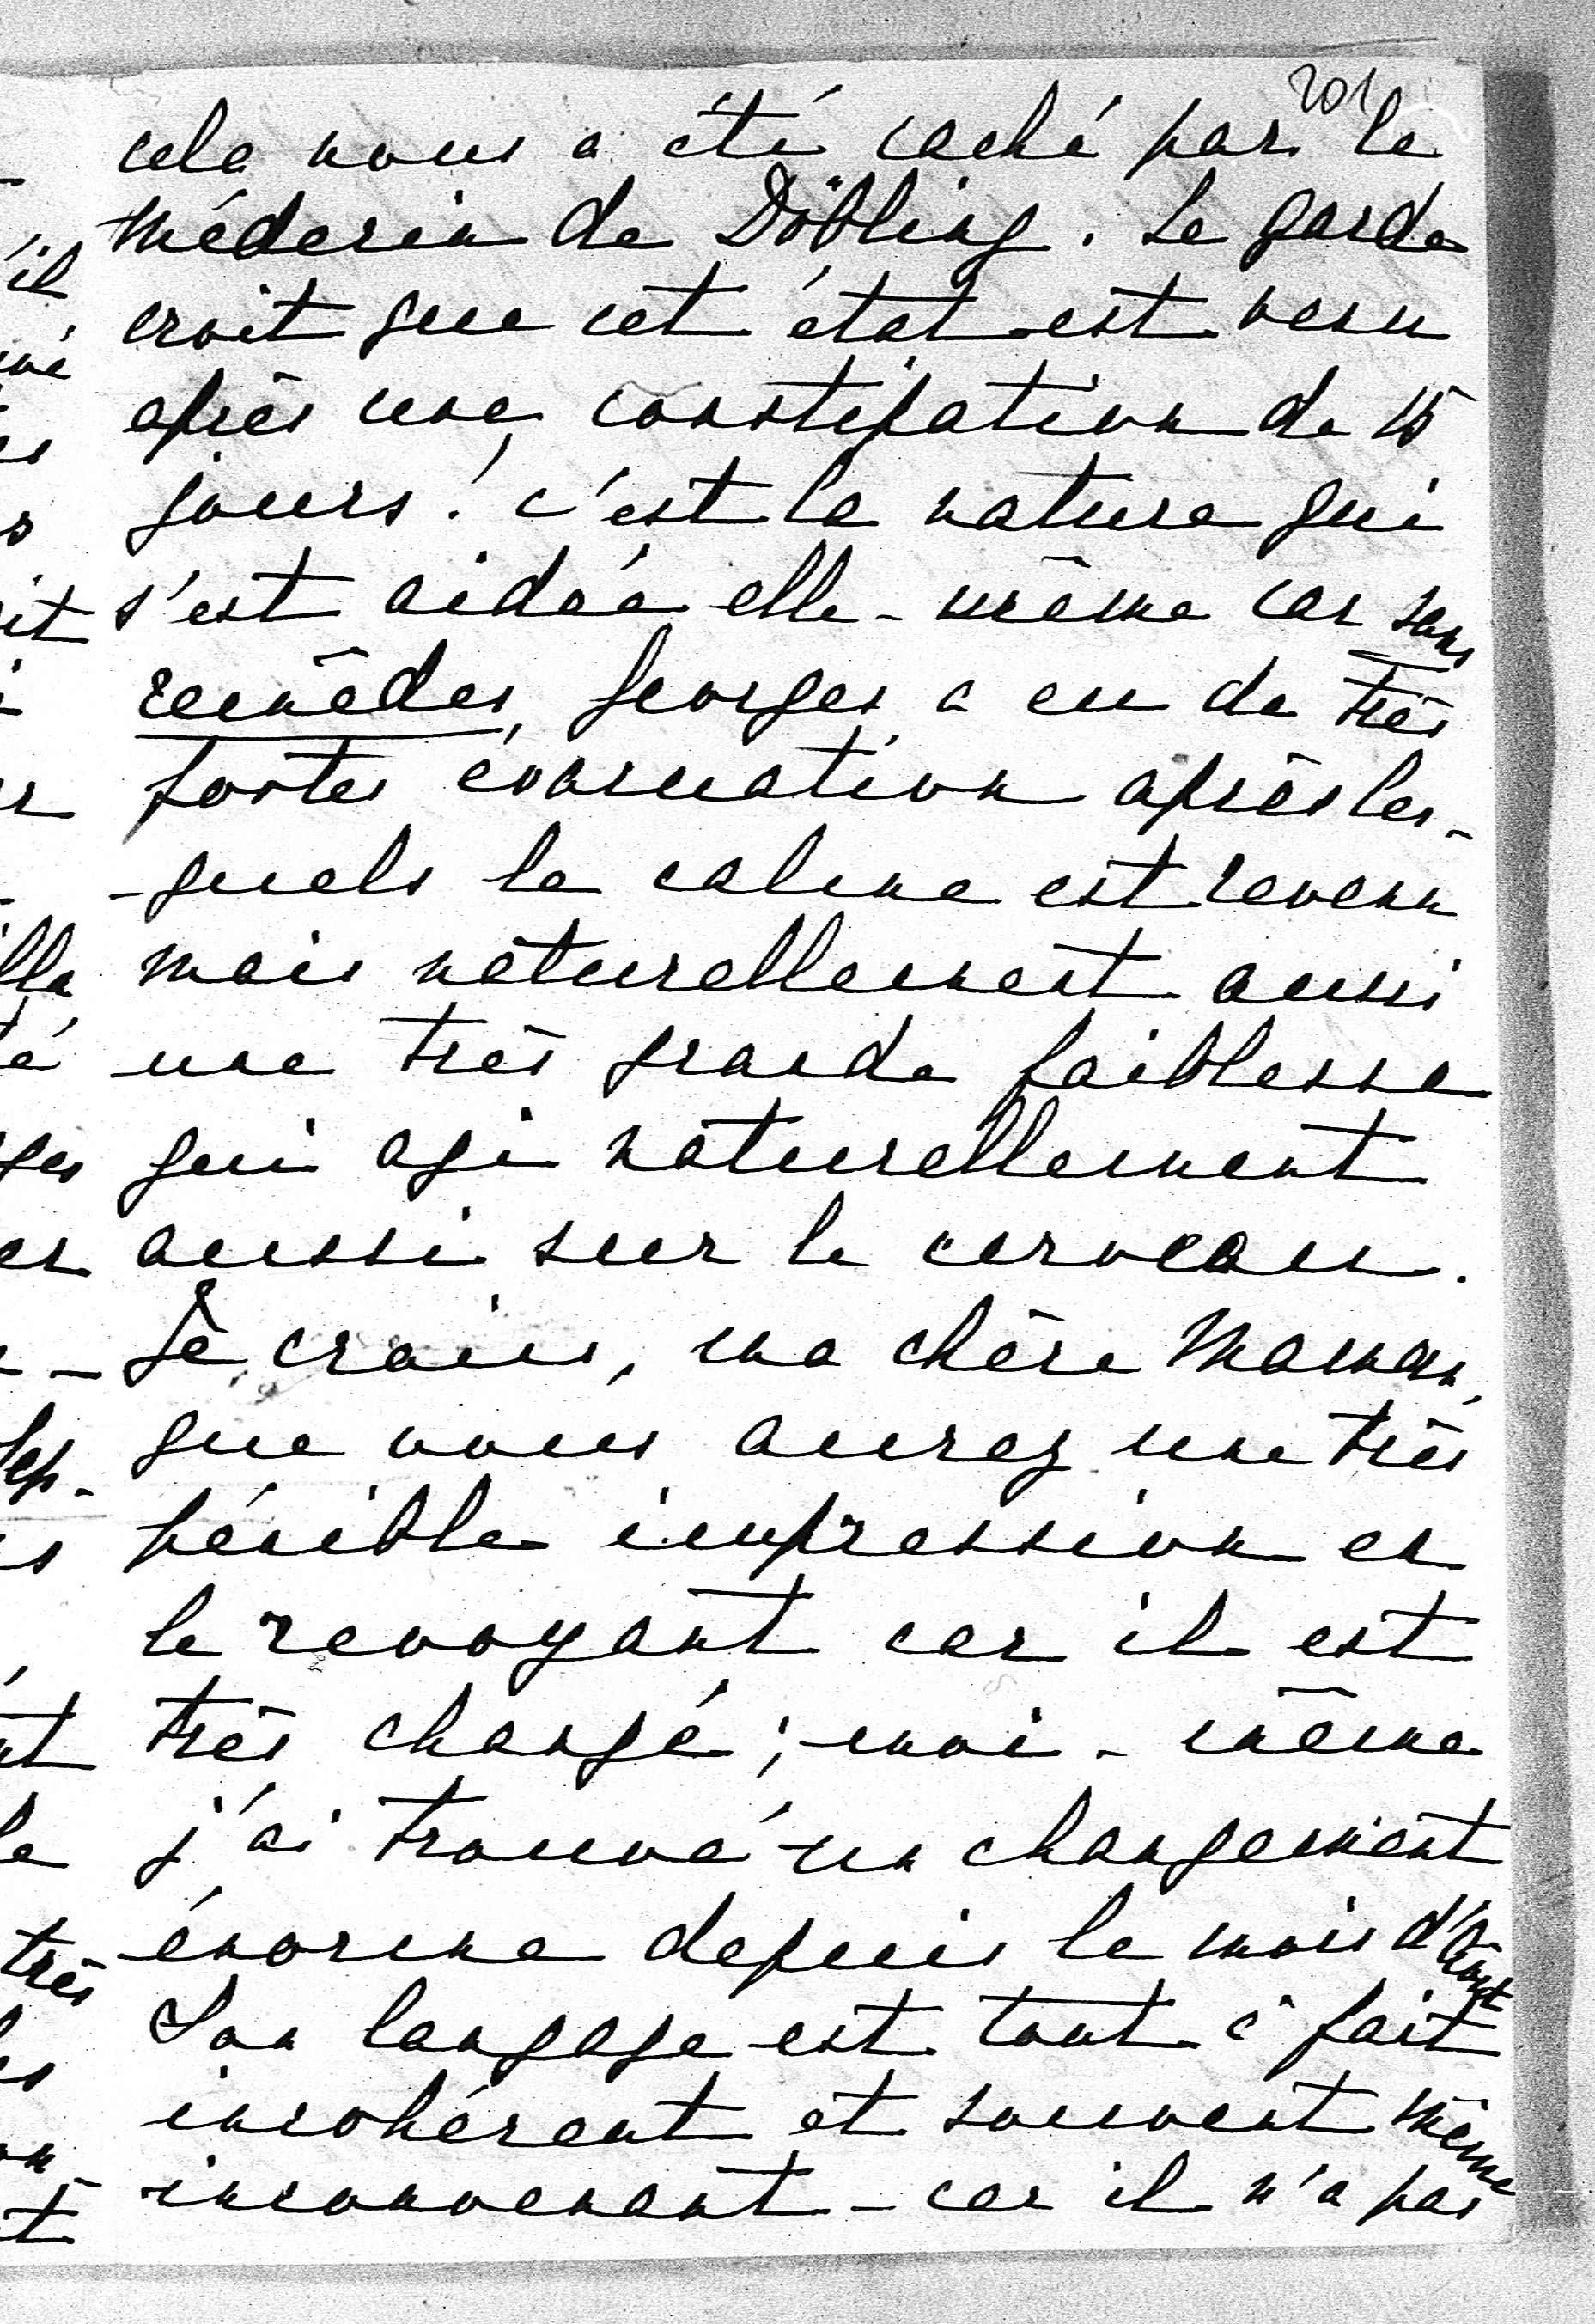 201
cela nous a été caché par le
médecin de Döbling. Le garde
croit que cet état est venu
après une constipation de 15
jours! c'est la nature qui
s'est aidée elle-même car sans
remèdes, Georges a eu de très
fortes évacuation après les-
-quels le calme est revenu
mais naturellement aussi
une très grande faiblesse
qui agi naturellement
aussi sur le cerveau.
Je crains, ma chère Maman,
que vous aurez une très
pénible impression en
le revoyant car il est
très changé; moi-même
j'ai trouvé un changement
énorme depuis le mois d'Août
Son langage est tout à fait
incohérent et souvent même
inconvenant - car il n'a pas